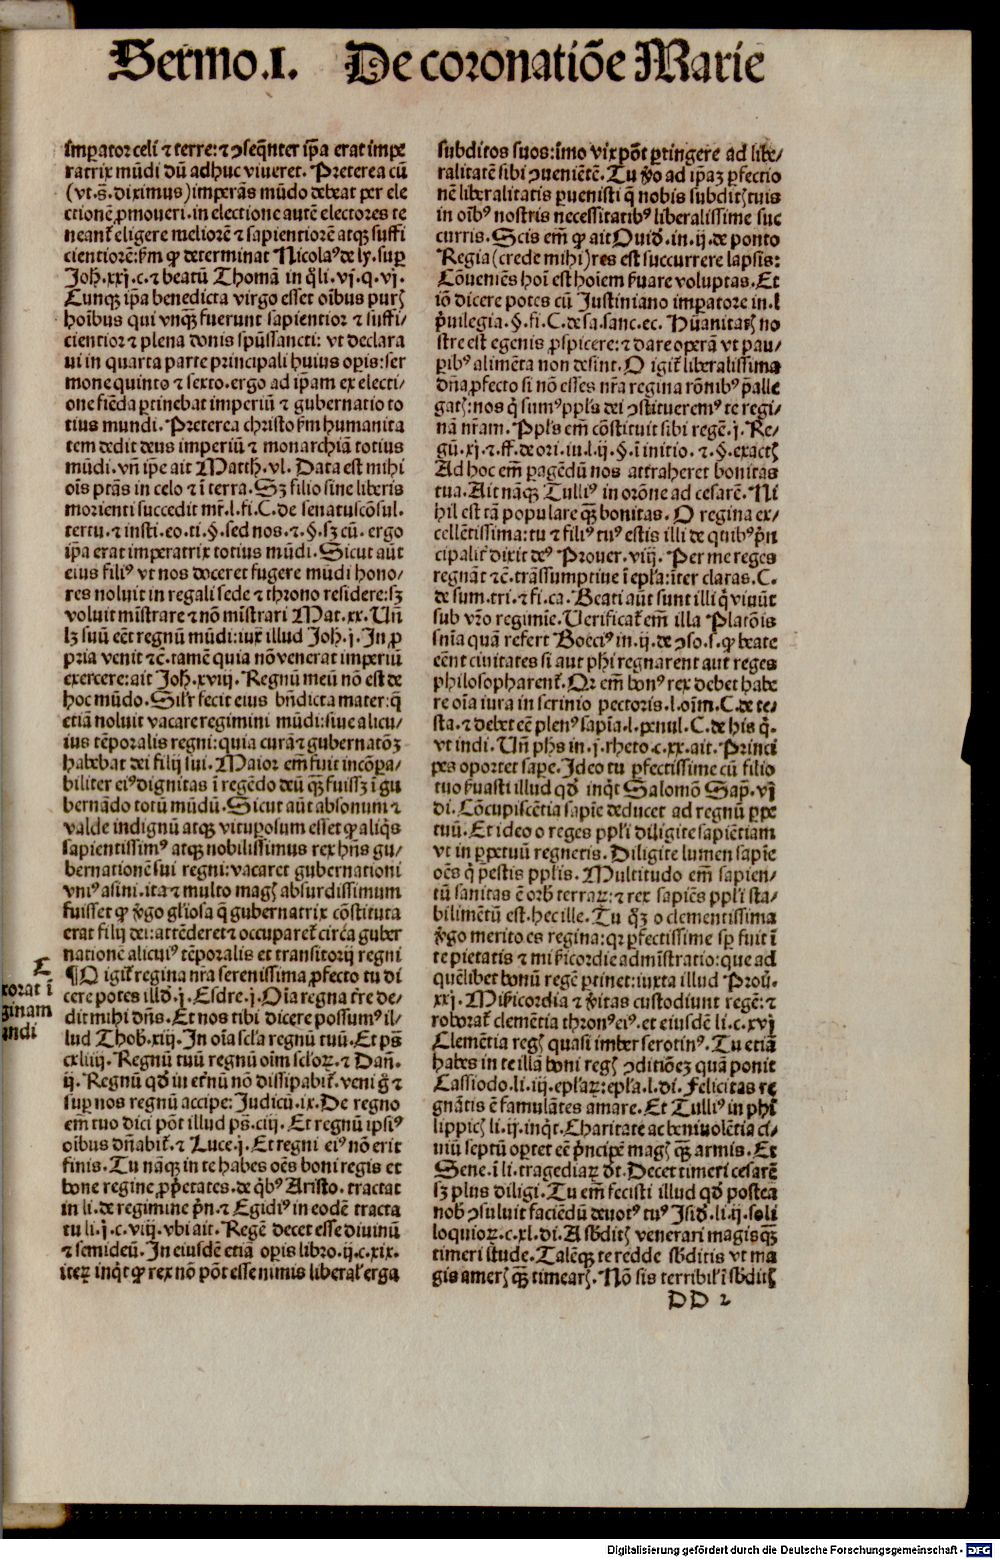 Sermo .I. De coronatiõe Marie
imꝑator celi ⁊ terre: ⁊ ꝯseq̃nter ip̃a erat impe
ratrix mũdi dũ adhuc viveret. Preterea cũ
(vt .s. diximus) imperãs mũdo debeat per ele
ctionẽ ꝓmoveri. in electione autẽ electores te
neant̃ eligere meliorẽ ⁊ sapientiorẽ atqꝫ suffi
cientiorẽ: km̃ ꝙ determinat Nicolaꝰ de ly. suꝑ
Joh̃. xxj. c. ⁊ beatũ Thomã in q̃li. vj. q. vj.
Cunqꝫ ip̃a benedicta virgo esset oĩbus puris
hoĩbus qui vnqꝫ fuerunt sapientior ⁊ suffi/
cientior ⁊ plena donis sp̃ussancti: vt declara
ui in quarta parte principali huius oꝑis: ser
mone quinto ⁊ sexto. ergo ad ip̃am ex electi/
one fiẽda ꝑtinebat imperiũ ⁊ gubernatio to
tius mundi. Preterea christo km̃ humanita
tem dedit deus imperiũ ⁊ monarchiã totius
mũdi. vñ ip̃e ait Matth̃. vl. Data est mihi
oĩs ptãs in celo ⁊ ĩ terra. Sꝫ filio sine liberis
morienti succedit mr̃. l. fi. C. de senatuscõsul.
tertu. ⁊ insti. eo. ti. §. sed nos. ⁊. §. sꝫ cũ. ergo
ip̃a erat imperatrix totius mũdi. Sicut aũt
eius filiꝰ vt nos doceret fugere mũdi hono/
res noluit in regali sede ⁊ throno residere: sꝫ
voluit mĩstrare ⁊ nõ mĩstrari Mat. xx. Uñ
lꝫ suũ eẽt regnũ mũdi: iux̃ illud Joh̃. j. In ꝓ
pria venit ⁊c̃. tamẽ quia nõ venerat imperiũ
exercere: ait Joh̃. xviij. Regnũ meũ nõ est de
hoc mũdo. Sil̃r fecit eius bñdicta mater: q̃
etiã noluit vacare regimini mũdi: siue alicu/
ius tẽporalis regni: quia curã ⁊ gubernatõꝫ
habebat dei filij sui. Maior em̃ fuit incõꝑa/
biliter eiꝰ dignitas ĩ regẽdo deũ qꝫ̃ fuissꝫ ĩ gu
bernãdo totũ mũdũ. Sicut aũt absonum ⁊
valde indignũ atqꝫ vituꝑosum esset ꝙ aliq̃s
sapientissimꝰ atqꝫ nobilissimus rex hñs gu/
bernationẽ sui regni: vacaret gubernationi
vniꝰ asini. ita ⁊ multo magis absurdissimum
fuisset ꝙ v̾go gl̃iosa q̃ gubernatrix cõstituta
erat filij dei: attẽderet ⁊ occuparet̃ circa guber
nationẽ alicuiꝰ tẽporalis et transitorij regni
¶O igit̃ regina nr̃a serenissima ꝓfecto tu di
cere potes illd̾. j. Esdre. j. Oĩa regna tr̃e de/
dit mihi dñs. Et nos tibi dicere possumꝰ il/
lud Thob̃. xiij. In oĩa scl̃a regnũ tuũ. Et ps̃
cxliiij. Regnũ tuũ regnũ oĩm scl̃oꝝ. ⁊ Dañ.
ij. Regnũ qd̾ in et̾nũ nõ dissipabit̃. veni g̃ ⁊
suꝑ nos regnũ accipe: Judicũ. ix. De regno
em̃ tuo dici põt illud ps̃. ciij. Et regnũ ipsiꝰ
oĩbus dñabit̃. ⁊ Luce. j. Et regni eiꝰ nõ erit
finis. Tu nãqꝫ in te habes oẽs boni regis et
bone regine ꝓp̃etates. de qb̾ꝰ Aristo. tractat
in li. de regimine pñ. ⁊ Egidiꝰ in eodẽ tracta
tu li. j. c. viij. vbi ait. Regẽ decet esse divinũ
⁊ semideũ. In eiusdẽ etiã oꝑis libro. ij. c. xix.
iteꝝ inq̃t ꝙ rex nõ põt esse nimis liberal̾ erga
torat ĩ
ginam
undi
subditos suos: ĩmo vix põt ꝑtingere ad libe/
ralitatẽ sibi ꝯueniẽtẽ. Tu v̾o ad ip̃aꝫ ꝑfectio
nẽ liberalitatis ꝑuenisti q̃ nobis subditis tuis
in oĩbꝰ nostris necessitatibꝰ liberalissime suc
curris. Scis em̃ ꝙ ait Ouid̾. in. ij. de ponto
Regia (crede mihi) res est succurrere lapsis:
Cõveniẽs hoĩ est hoĩem ẜuare voluptas. Et
iõ dicere potes cũ Justiniano imperatore in. l
p̃uilegia. §. fi. C. de sa. sanc. ec. Hũanitatis no
stre est egenis ꝓspicere: ⁊ dare operã vt pau/
ꝑibꝰ alimẽta non desint. O igit̃ liberalissima
dña ꝓfecto si nõ esses nr̃a regina rõnibꝰ p̃alle
gatis: nos q̃ sumꝰ pp̃ls dei ꝯstitueremꝰ te regi/
nã nr̃am. Pp̃ls em̃ cõstituit sibi regẽ. j. Re/
gũ. xj. ⁊. ff. de ori. iu. l. ij. §. ĩ initio. ⁊. §. exactis
Ad hoc em̃ ꝑagẽdũ nos attraheret bonitas
tua. Ait nãqꝫ Tulliꝰ in orõne ad cesarẽ. Ni
hil est tã populare qꝫ̃ bonitas. O regina ex/
cellẽtissima: tu ⁊ filiꝰ tuꝰ estis illi de quibꝰ pñ
cipalit̾ dixit deꝰ Prouer. viij. Per me reges
regnãt ⁊c̃. trãssumptiue ĩ epl̃a: ĩter claras. C.
de sum. tri. ⁊ fi. ca. Beati aũt sunt illi q̃ viuũt
sub vr̃o regimĩe. Uerificat̃ em̃ illa Platõis
sñia quã refert Boeciꝰ in. ij. de ꝯso. s. ꝙ beate
eẽnt ciuitates si aut ph̃i regnarent aut reges
philosopharent̃. Qr em̃ bonꝰ rex debet habe
re oĩa iura in scrinio pectoris. l. oĩm. C. de te/
sta. ⁊ debet eẽ plenꝰ sapĩa. l. penul. C. de his q̃.
vt indi. Uñ ph̃s in. j. rheto. c. xx. ait. Princi
pes oportet sape. Ideo tu ꝑfectissime cũ filio
tuo ẜuasti illud qd̾ inq̃t Salomõ Sap̃. vj
di. Cõcupiscẽtia sapĩe deducet ad regnũ ꝑpe
tuũ. Et ideo o reges pp̃li diligite sapiẽtiam
vt in ꝑpetuũ regnetis. Diligite lumen sapĩe
oẽs q̃ pestis pp̃lis. Multitudo em̃ sapien/
tũ sanitas ẽ orb̾ terraꝝ: ⁊ rex sapiẽs pp̃li sta/
bilimẽtũ est. hec ille. Tu q̃ꝫ o clementissima
v̾go merito es regina: qꝛ ꝑfectissime sp̃ fuit ĩ
te pietatis ⁊ mĩẜicordie admĩstratio: que ad
quẽlibet bonũ regẽ ꝑtinet: iuxta illud Proũ.
xxj. Mĩẜicordia ⁊ v̾itas custodiunt regẽ: ⁊
roborat̃ clemẽtia thronꝰ eiꝰ. et eiusdẽ li. c. xvj
Clemẽtia regis quasi imber serotinꝰ. Tu etiã
habes in te illã boni regis ꝯditiõeꝫ quã ponit
Cassiodo. li. iij. epl̃aꝝ: epl̃a. l. di. Felicitas re
gnãtis ẽ famulãtes amare. Et Tulliꝰ in ph̃i
lippicis li. ij. inq̃t. Charitate ac beniuolẽtia ci/
uiũ septũ oꝑtet eẽ p̃ncipẽ magis qꝫ̃ armis. Et
Sene. ĩ li. tragediaꝝ d̾t. Decet timeri cesarẽ
sꝫ plus diligi. Tu em̃ fecisti illud qd̾ postea
nob̾ ꝯsuluit faciẽdũ deuotꝰ tuꝰ Isid̾. li. ij. soli
loquioꝝ. c. xl. di. A sb̾ditis venerari magisqꝫ̃
timeri stude. Talẽqꝫ te redde sb̾ditis vt ma
gis ameris qꝫ̃ timearis. Nõ sis terribil̾ ĩ sb̾ditis
DD 2
Digitalisierung gefördert durch die Deutsche Forschungsgemeinschaft - DFG